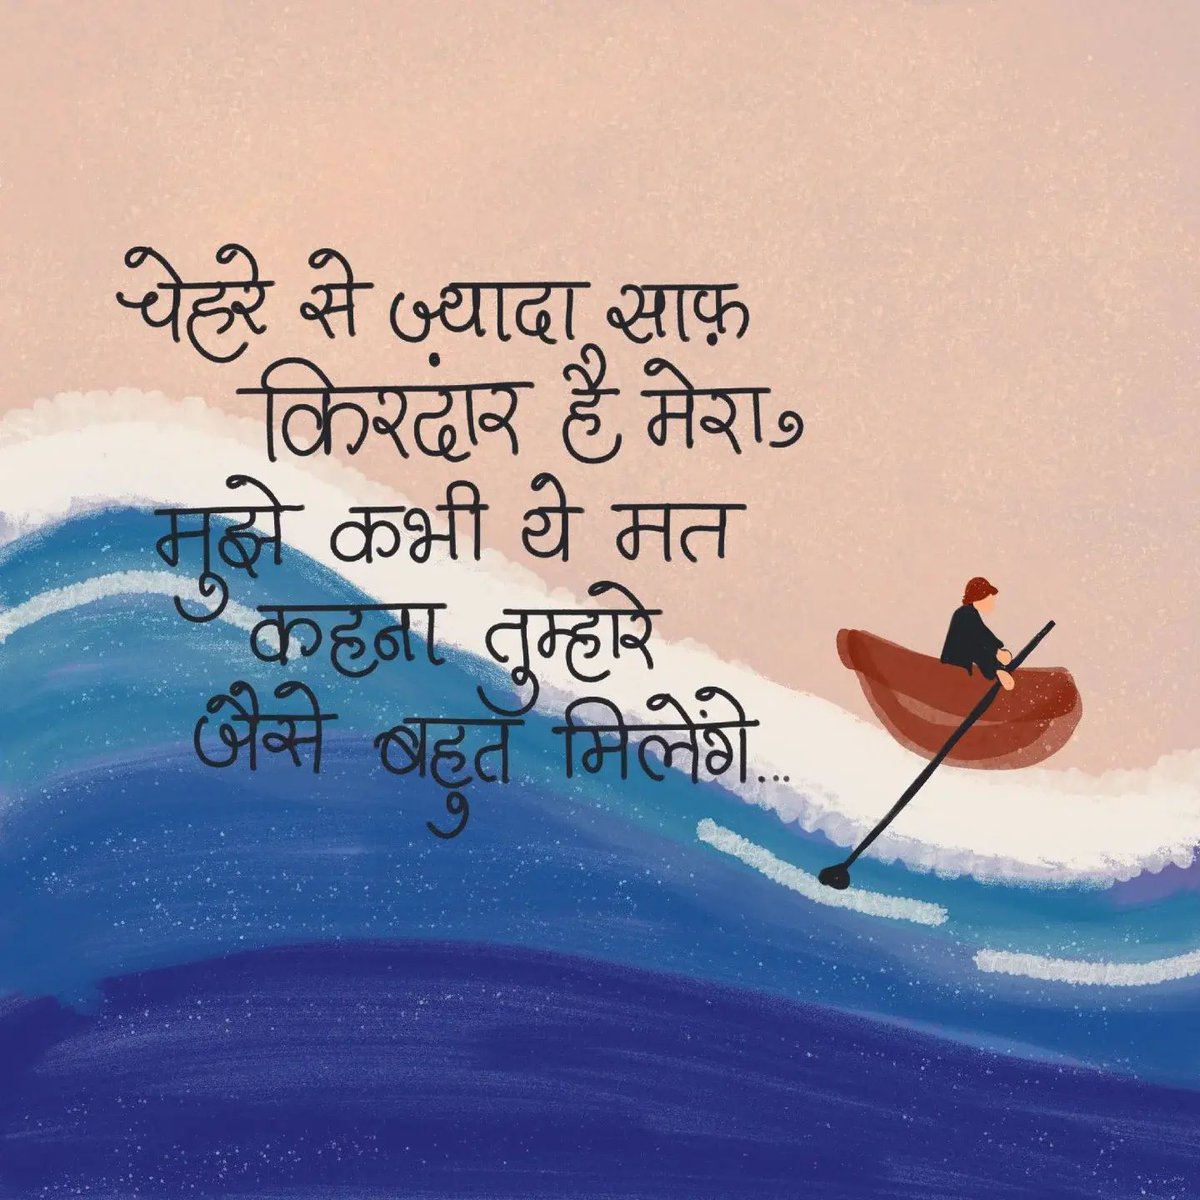 चेहरे से ज्यादा साफ़
किरदार है मेरा,
मुझे कभी ये मत
कहना तुम्हारे
जैसे बहुत मिलेंगे...